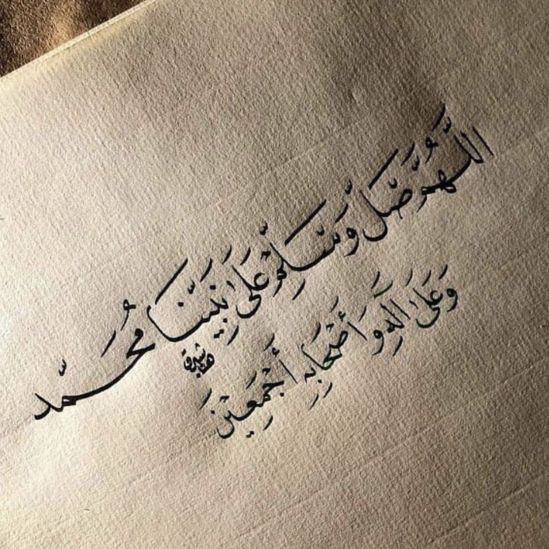 اللَّهُمَّ صَلِّ وَسَلِّمْ عَلَىٰ نَبِيِّنَا مُحَمَّد
وَعَلَىٰ آلِهِ وَأَصْحَابِهِ أَجْمَعِينَ